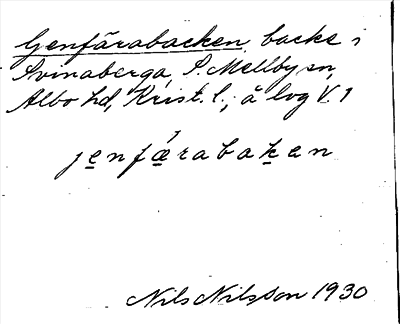 Genfärabacken, backe i
Svinaberga, S. Mellby sn,
Albo hd, Krist. l., å log V. 1
jenfǽrabakan
Nils Nilsson 1930